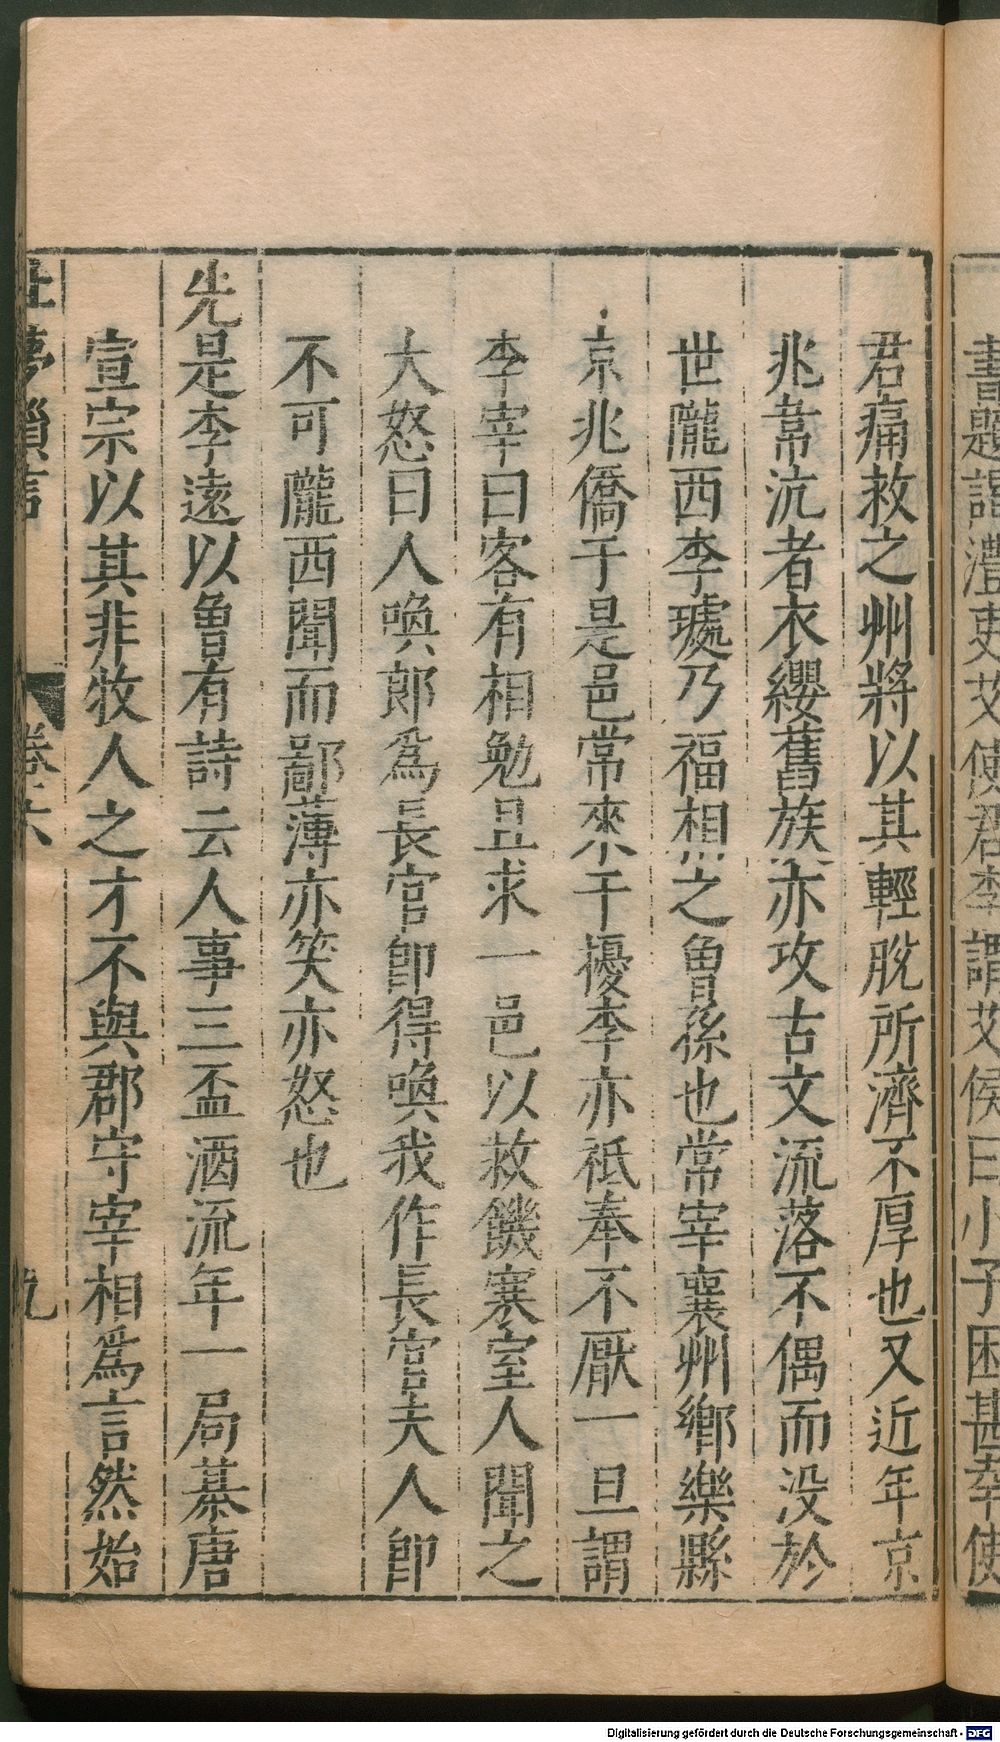 書題謂澧吏艾使君李謂艾侯曰小子困甚幸使
君痛救之州將以其輕脫所濟不厚也又近年京
兆韋沆者衣纓舊族亦攻古文流落不偶而没於
世隴西李璩乃福相之魯孫也常宰襄州鄉樂縣
京兆僑于是邑常來干擾李亦祗奉不厭一旦謂
李宰曰客有相勉且求一邑以救饑寒室人聞之
大怒曰人喚郎爲長官卽得喚我作長官夫人卽
不可隴西聞而鄙薄亦笑亦怒也
先是李遠以曾有詩云人事三盃酒流年一局棊唐
宣宗以其非牧人之才不與郡守宰相爲言然始
夢瑣言 卷六 九
Digitalisierung gefördert durch die Deutsche Forschungsgemeinschaft - DFG